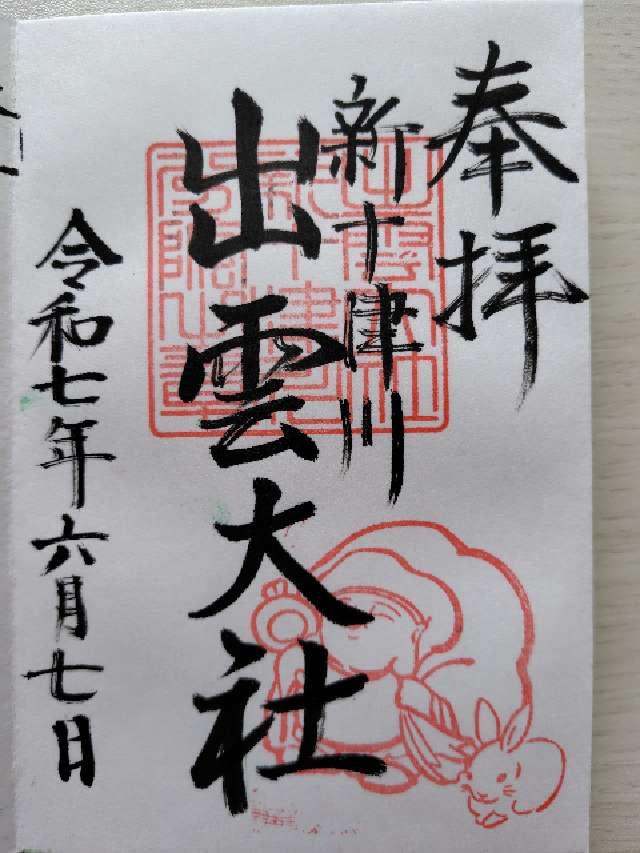 奉拝
新十津川
出雲大社
令和七年六月七日